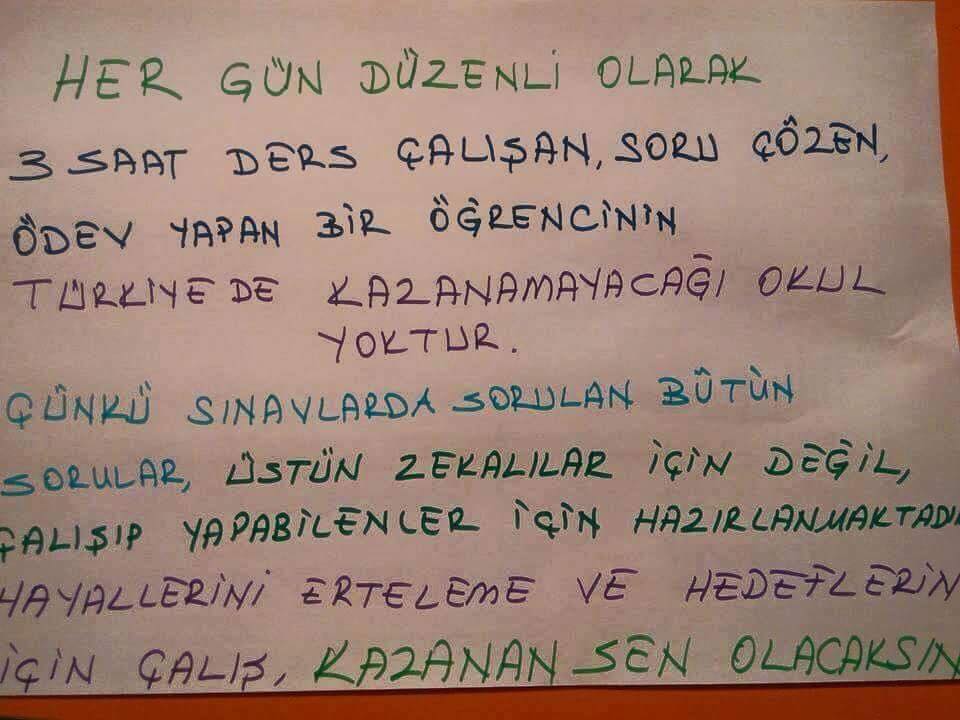 HER GÜN DÜZENLİ OLARAK
3 SAAT DERS ÇALIŞAN, SORU ÇÖZEN,
ÖDEV YAPAN BİR ÖĞRENCİNİN
TÜRKİYEDE KAZANAMAYACAĞI OKUL
YOKTUR.
ÇÜNKÜ SINAVLARDA SORULAN BÜTÜN
SORULAR, ÜSTÜN ZEKALILAR İÇİN DEĞİL,
ÇALIŞIP YAPABİLENLER İÇİN HAZIRLANMAKTADIR
HAYALLERİNİ ERTELEME VE HEDEFLERİN
İÇİN ÇALIŞ, KAZANAN SEN OLACAKSIN